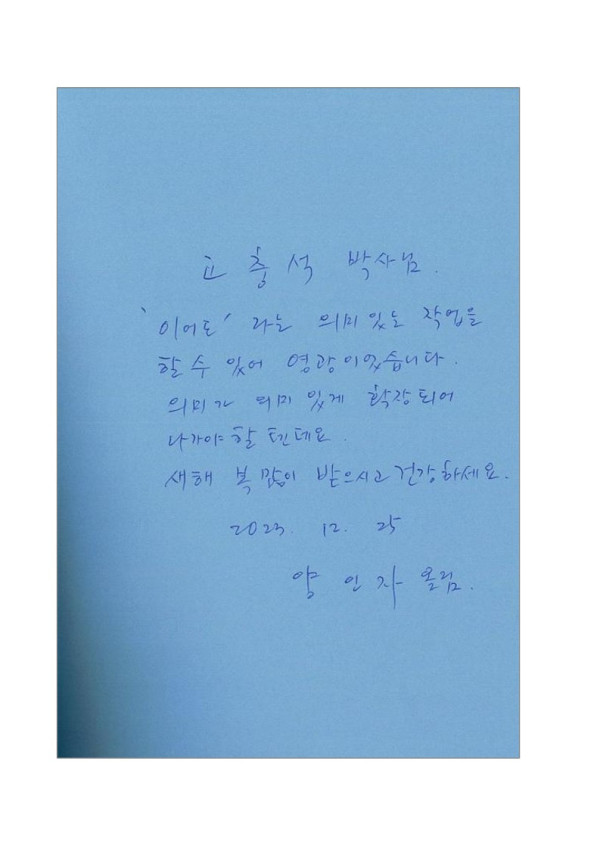 고 충 석 박사님.
'이어도' 라는 의미있는 작업을
할 수 있어 영광이었습니다.
의미가 의미 있게 확장되어
나가야 할 텐데요.
새해 복 많이 받으시고 건강하세요.
2023. 12. 25
양 인 자 올림.